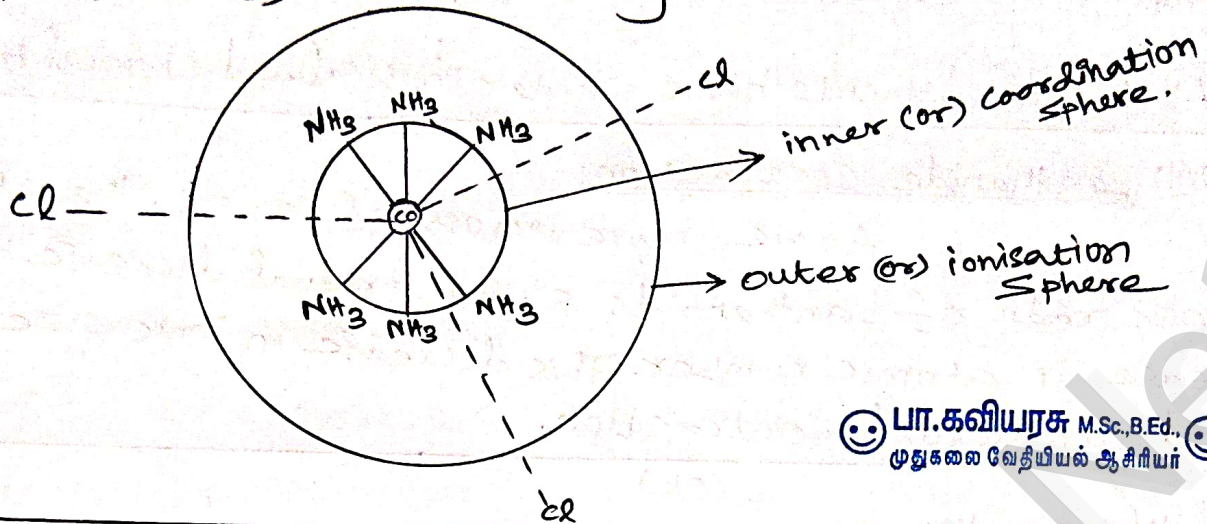 NH3
NH3
NH3
cl
inner (or) coordination
sphere.
cl
CO
outer (or) ionisation
Sphere
NH3
NH3
NH3
பா.கவியரசு M.Sc.,B.Ed.,
முதுகலை வேதியியல் ஆசிரியர்
cl